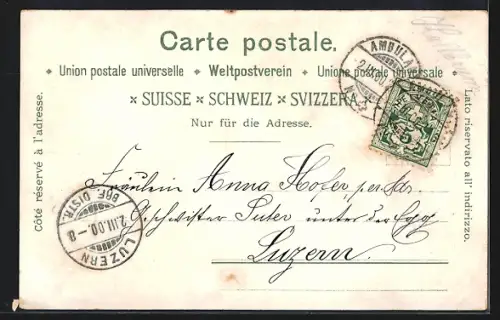 Carte postale.
Union postale universelle ✦ Weltpostverein ✦ Unione postale universale
SUISSE ✦ SCHWEIZ ✦ SVIZZERA
Nur für die Adresse.
Côté réservé à l'adresse.
Lato riservato all' indirizzo.
AMBULA
Fräulein Anna Hofer, per Adr.
Geschwister Suter unter der Egg
Luzern.
LUZERN
BRF. DISTR.
2.III.00.-8